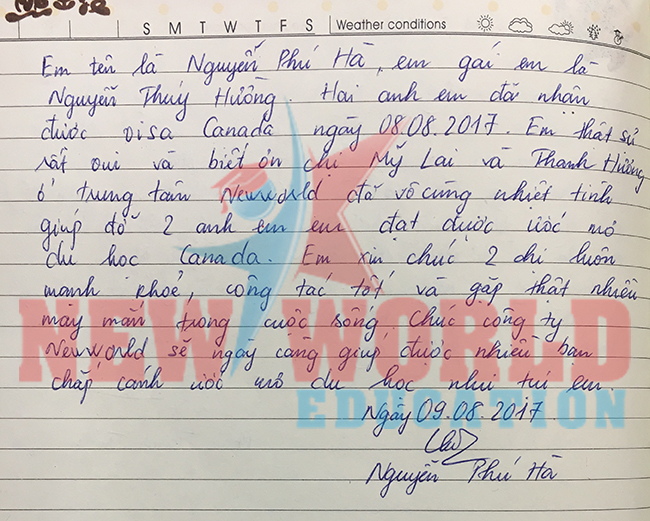 S M T W T F S Weather conditions
Em tên là Nguyễn Phú Hà, em gái em là
Nguyễn Thuý Hường. Hai anh em đã nhận
được visa Canada ngày 08.08.2017. Em thật sự
rất vui và biết ơn chị Mỹ Lai và Thanh Hường
ở trung tâm Newworld đã vô cùng nhiệt tình
giúp đỡ 2 anh em em đạt được ước mơ
du học Canada. Em xin chúc 2 chị luôn
mạnh khoẻ, công tác tốt và gặp thật nhiều
may mắn trong cuộc sống. Chúc công ty
Newworld sẽ ngày càng giúp được nhiều bạn
chắp cánh ước mơ du học như tụi em.
Ngày 09.08.2017
Nguyễn Phú Hà
NEW WORLD
EDUCATION